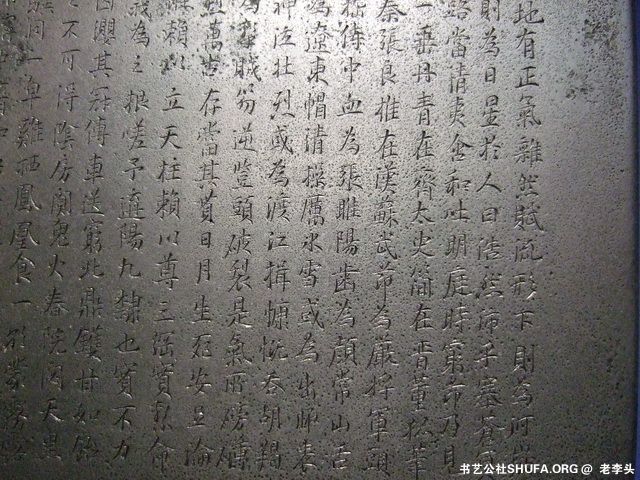 地有正氣雜然賦流形下則為河嶽
則為日星於人曰浩然沛乎塞蒼冥
路當清夷含和吐明庭時窮節乃見
一垂丹青在齊太史簡在晉董狐筆
秦張良椎在漢蘇武節為嚴將軍頭
嵇侍中血為張睢陽齒為顏常山舌
為遼東帽清操厲冰雪或為出師表
神泣壯烈或為渡江楫慷慨吞胡羯
為擊賊笏逆豎頭破裂是氣所磅礡
烈萬古存當其貫日月生死安足論
維賴以立天柱賴以尊三綱實繫命
義為之根嗟予遘陽九隸也實不力
囚纓其冠傳車送窮北鼎鑊甘如飴
之不可得陰房闃鬼火春院閟天黑
驥同一皁雞栖鳳凰食一朝蒙霧露
书艺公社SHUFA.ORG @ 老李头